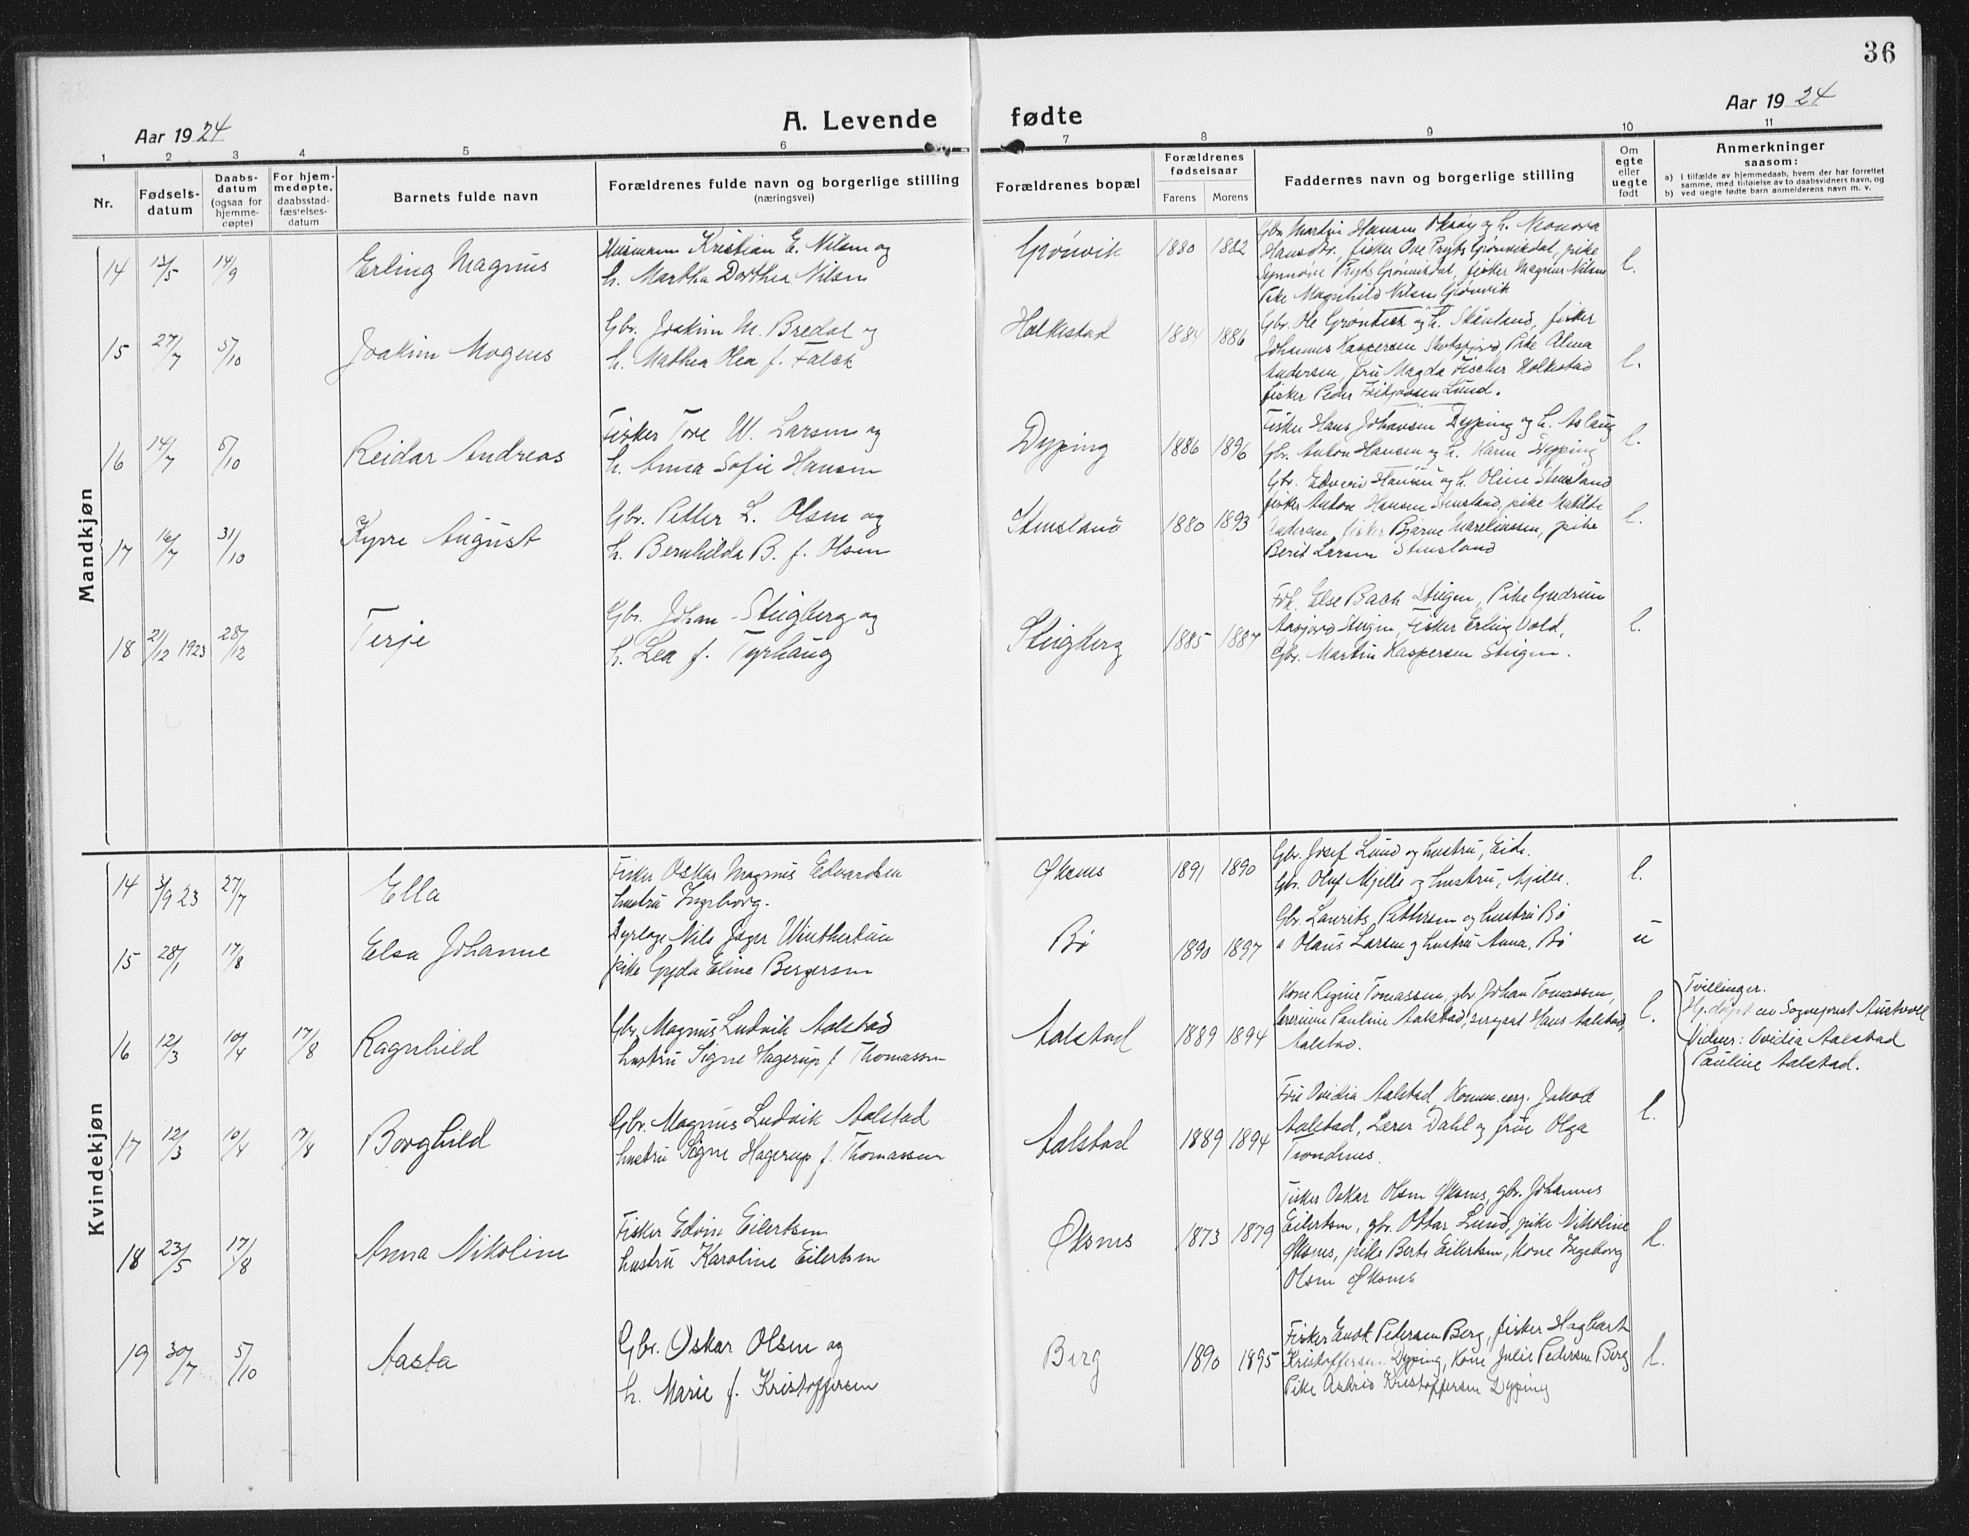 36
Aar 1924
A. Levende fødte
Aar 1924
1 2 3 4 5 6 7 8 9 10 11
Nr.
Fødsels-
datum
Daabs-
datum
(ogsaa for
hjemme-
døpte)
For hjem-
medøpte,
daabsstad-
fæstelses-
datum
Barnets fulde navn
Forældrenes fulde navn og borgerlige stilling
(næringsvei)
Forældrenes bopæl
Forældrenes
fødselsaar
Farens Morens
Faddernes navn og borgerlige stilling
Om
egte
eller
uegte
født
Anmerkninger
saasom:
a) i tilfælde av hjemmedaab, hvem der har forrettet
samme, med tilføielse av to daabsvidners navn, og
b) ved uegte fødte barn anmelderens navn m. v.
Mandkjøn
14 13/5 14/9 Erling Magnus
Husmann Kristian E. Nilsen og
h. Martha Dorthea Nilsen
Grønvik 1880 1882
Gbr. Martin Hansen og h.
Hansdtr., fisker Ove Pryts Grønvikdal, pike
Synnøve Pryts Grønvikdal, fisker Magnus Nilsen
Pike Magnhild Nilsen Grønvik
l.
15 27/7 5/10 Joakim Mogens
Gbr. Joakim M. Bredal og
h. Mathea Olea f. Falch
Holkestad 1884 1886
Gbr. Ole og h. Skånland, fisker
Johannes Kaspersen Pike Alma
Andersen, fru Magda Fischer Holkestad
fisker Peder Lund.
l.
16 14/7 5/10 Reidar Andreas
Fisker Tore W. Larsen og
h. Anna Sofie Hansen
Dyping 1886 1896
Fisker Hans Johansen Dyping og h. Aslaug
Gbr. Anton Hansen og h. Karen Dyping
l.
17 16/7 31/10 Kyrre August
Gbr. Petter L. Olsen og
h. Bernhilda B. f. Olsen
Stensland 1880 1893
Gbr. Edvin Hansen og h. Oline Stensland
fisker Anton Hansen Stensland, pike Matilde
Andersen, fisker Bjarne Martinussen, pike
Berit Larsen Stensland
l.
18 21/12 1923 28/12 Terje
Gbr. Johan Steigberg og
h. Lea f. Tyrhaug
Steigberg 1885 1887
Frk. Else Bach Steigen, Pike Gudrun
Aasjord Steigen, Fisker Erling Vold,
Gbr. Martin Kaspersen Steigen.
l.
Kvindekjøn
14 3/9 23 27/7 Ella
Fisker Oskar Magnus Edvardsen
hustru Ingeborg.
Øksnes 1891 1890
Gbr. Josef Lund og hustru, Eide.
Gbr. Oluf Mjelle og hustru, Mjelle.
l.
15 28/1 17/8 Elsa Johanne
Dyrlæge Nils Jæger Winthertun
pike Gyda Eline Bergersen
Bø 1890 1897
Gbr. Laurits Pettersen og hustru Bø
" Olaus Larsen og hustru Anna, Bø
u
16 12/3 10/4 17/8 Ragnhild
Gbr. Magnus Ludvik Aalstad
hustru Signe Hagerup f. Thomassen
Aalstad 1889 1894
Kone Regine Tomassen, gbr. Johan Tomassen,
lærerinne Pauline Aalstad, sersjant Hans Aalstad,
Aalstad.
l.
Tvillinger.
Hj.døpt av Sogneprest
Vidner: Ovidia Aalstad
Pauline Aalstad.
17 12/3 10/4 17/8 Borghild
Gbr. Magnus Ludvik Aalstad
hustru Signe Hagerup f. Thomassen
Aalstad 1889 1894
Frue Ovidia Aalstad, Jakob
Aalstad, Lærer Dahl og frue Olga
Trondenes.
l.
18 23/5 17/8 Anna Nikoline
Fisker Edvin Eilertsen
hustru Karoline Eilertsen
Øksnes 1873 1879
Fisker Oskar Olsen Øksnes, gbr. Johannes
Eilertsen, gbr. Ottar Lund, pike Nikoline
Øksnes, pike Berts Eilertsen, Kone Ingeborg
Olsen Øksnes
l.
19 30/7 5/10 Aasta
Gbr. Oskar Olsen og
h. Marie f. Kristoffersen
Berg 1890 1895
Fisker Enok Pedersen Berg, fisker Hagbart
Kristoffersen Dyping, Kone Julie Pedersen Berg
Pike Astrid Kristoffersen Dyping
l.